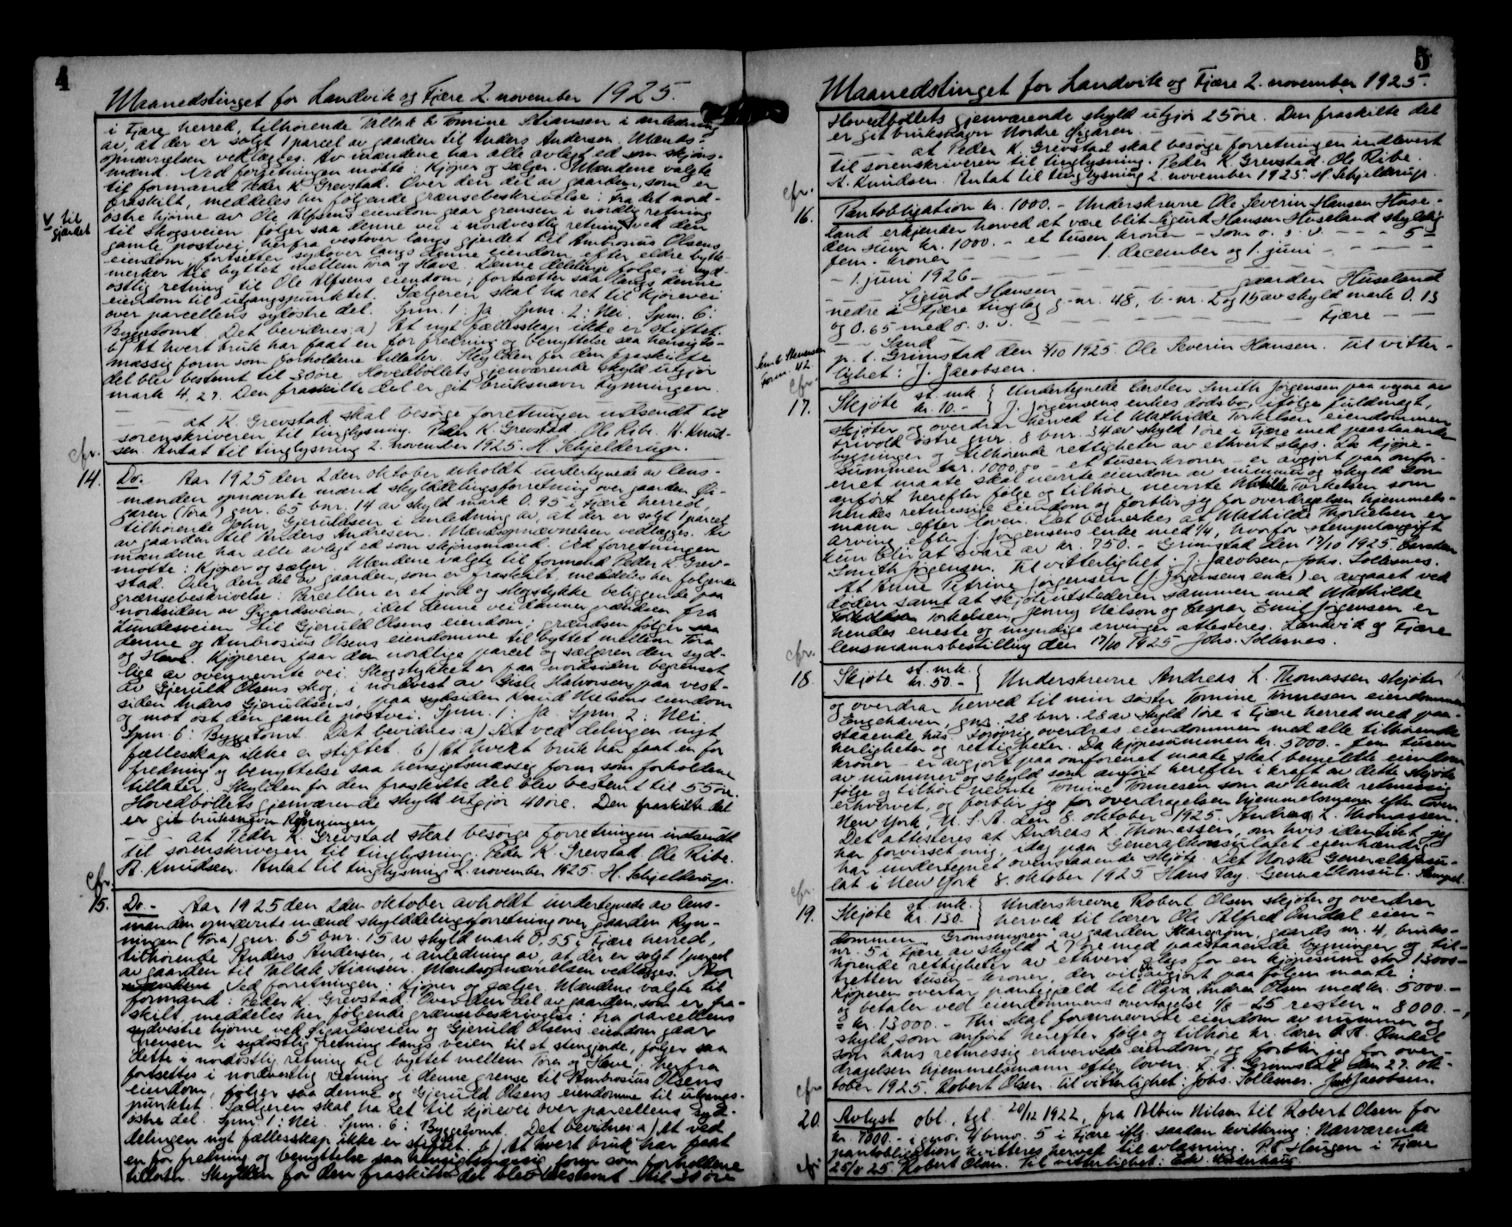 4
Maanedstinget for Landvik og Fjære 2. november 1925.
i Fjære herred, tilhørende Tallak & Tomine Stiansen i anledning
av, at der er solgt 1 parcel av gaarden til Anders Andersen. Mænds-
opnævnelsen vedlægges. Av mændene har alle avlagt ed som skjøns-
mænd. Ved forretningen møtte: Kjøper og sælger. Mændene valgte
til formand Peder K. Grevstad. Over den del av gaarden, som er
fraskilt, meddeles her følgende grænsebeskrivelse: Fra det nord-
østre hjørne av Ole Alfsens eiendom gaar grensen i nordlig retning
V til
gjærdet
til skogsveien følger saa denne vei i nordvestlig retning ved den
gamle postvei, herfra vestover langs gjerdet til Ambrosius Olsens
eiendom, fortsetter sydover langs denne eiendom efter eldre bytte-
merker til byttet mellem Tora og Have. Denne delelinje følges i syd-
østlig retning til Ole Alfsens eiendom; fortsætter saa langs denne
eiendom til utgangspunktet. Sælgeren skal ha ret til kjørevei
over parcellens sydøstre del. Spm. 1: Ja. Spm. 2: Nei. Spm. 6:
Byggetomt. Det bevidnes: a) At nyt fællesskap ikke er stiftet.
b) At hvert bruk har faat en for fredning og benyttelse saa hensigts-
mæssig form som forholdene tillater. Skylden for den fraskilte
del blev bestemt til 30 øre. Hovedbøllets gjenværende skyld utgjør
mark 4.27. Den fraskilte del er git bruksnavn Lyningen.
— at K. Grevstad skal besørge forretningen indsendt til
sorenskriveren til tinglysning. Peder K. Grevstad. Ole Ribe. A. Knud-
sen. Antat til tinglysning 2. november 1925. H. Schjelderup.
cfr.
14. Do. Aar 1925 den 2 den oktober avholdt undertegnede av lens-
manden opnævnte mænd skylddelingsforretning over gaarden Øi-
garen (Tora) gnr. 65 bnr. 14 av skyld mark 0.95 i Fjære herred,
tilhørende John Gjeruldsen i anledning av, at der er solgt 1 parcel
av gaarden til Anders Andresen. Mændsopnævnelsen vedlægges. Av
mændene har alle avlagt ed som skjønsmænd. Ved forretningen
møtte: Kjøper og sælger. Mændene valgte til formand Peder K. Grev-
stad. Over den del av gaarden, som er fraskilt, meddeles her følgende
grænsebeskrivelse: Parcellen er et jord og skogstykke beliggende paa
nordsiden av Øigardsveien, idet denne vei danner grændsen fra
Lundeveien til Gjeruld Olsens eiendom; grændsen følger saa
denne og Ambrosius Olsens eiendomme til byttet mellem Tora
og Have. Kjøperen faar den nordlige parcel og sælgeren den syd-
lige av ovennevnte vei. Skogstykket er paa nordsiden begrenset
av Gjeruld Olsens skog, i nordvest av Gisle Halvorsens, paa vest-
siden Anders Gjeruldsens, paa sydsiden Knud Nielsens eiendom
og mot ost den gamle postvei. Spm. 1: Ja. Spm. 2: Nei.
Spm. 6: Byggetomt. Det bevidnes: a) At ved delingen nyt
fællesskap ikke er stiftet. b) At hvert bruk har faat en for
fredning og benyttelse saa hensigtsmæssig form som forholdene
tillater. Skylden for den fraskilte del blev bestemt til 55 øre.
Hovedbøllets gjenværende skyld utgjør 40 øre. Den fraskilte del
er git bruksnavn Rymningen.
— at Peder K. Grevstad skal besørge forretningen indsendt
til sorenskriveren til tinglysning. Peder K. Grevstad. Ole Ribe.
A. Knudsen. Antat til tinglysning 2. november 1925. H. Schjelderup.
cfr.
15. Do. - Aar 1925 den 2den oktober avholdt undertegnede av lens-
manden opnævnte mænd skylddelingsforretning over gaarden Rym-
ningen (Tora) gnr. 65 bnr. 15 av skyld mark 0,55 i Fjære herred,
tilhørende Anders Andersen, i anledning av, at der er solgt 1 parcel
av gaarden til Tallak Stiansen. Mændsopnævnelsen vedlægges.
Ved forretningen: Kjøper og sælger. Mændene valgte til
formand: Peder K. Grevstad. Over den del av gaarden, som er fra-
skilt, meddeles her følgende grænsebeskrivelse: Fra parcellens
sydvestre hjørne ved Øigardsveien og Gjeruld Olsens eiendom gaar
grensen i sydøstlig retning langs veien til et stengjerde, følger saa
dette i nordøstlig retning til byttet mellem Tora og Have, herfra
fortsettes i nordvestlig retning i denne grense til Ambrosius Olsens
eiendom, følger saa denne og Gjeruld Olsens eiendomme til utgangs-
punktet. Sælgeren skal ha ret til kjørevei over parcellens syd-
østre del. Spm. 1: Nei. Spm. 6: Byggetomt. Det bevidnes: a) At ved
delingen nyt fællesskap ikke er stiftet. b) At hvert bruk har faat
en for fredning og benyttelse saa hensigtsmæssig form som forholdene
tillater. Skylden for den fraskilte del blev bestemt til 30 øre
5
Maanedstinget for Landvik og Fjære 2. november 1925.
Hovedbøllets gjenværende skyld utgjør 25 øre. Den fraskilte del
er git bruksnavn Nordre Øigaren.
— at Peder K. Grevstad skal besørge forretningen indlevert
til sorenskriveren til tinglysning. Peder K. Grevstad. Ole Ribe.
A. Knudsen. Antat til tinglysning 2. november 1925. H. Schjelderup.
cfr.
16. Pantobligation kr. 1000.- Underskrevne Ole Severin Hansen Huse-
land erkjender herved at være blit Sigurd Hansen Huseland skyldig
den sum kr. 1000.- et tusen kroner - som o. s. v. - - - 5 -
fem - kroner - - - 1 december og 1. juni -
- 1 juni 1926 - - - gaarden Huseland
- Sigurd Hansen
nedre i Fjære tinglag g.-nr. 48, b.-nr. 2 og 15 av skyld mark 0.13
og 0.65 med o. s. v. - - - Fjære - -
- Smd -
p. t. Grimstad den 4/10 1925. Ole Severin Hansen. Til vitter-
lighet: J. Jacobsen.
cfr.
17. Skjøte st. mk. kr. 10.- Undertegnede Carsten Smith Jørgensen paa vegne av
J. Jørgensens enkes dødsbo, ifølge fuldmagt,
skjøter og overdrar herved til Mathilde Torkelsen eiendommen
østre gnr. 8 bnr. 34 av skyld 1 øre i Fjære med paastaaende
bygninger og tilhørende rettigheter av ethvert slags. Da kjøpe-
summen kr. 1000,00 - et tusen kroner - er avgjort paa omfor-
enet maate skal nevnte eiendom av nummer og skyld som
anført herefter følge og tilhøre nevnte Mathilde Torkelsen som
hendes retmessige eiendom og forblir jeg for overdragelsen hjemmels-
mann efter loven. Det bemerkes at Mathilde Thorkelsen er
arving efter J. Jørgensens enke med 1/4, hvorfor stempelavgift
kun blir at svare av kr. 750.- Grimstad den 17/10 1925. Carsten
Smith Jørgensen. Til vitterlighet: J. Jacobsen, Johs. Tollesnes.
At Anne Petrine Jørgensen (J. Jørgensens enke) er avgaaet ved
døden samt at skjøteutstederen sammen med Mathilde
Torkelsen, Jenny Nelson og Caspar Emil Jørgensen er
hendes eneste og myndige arvinger attesteres. Landvik og Fjære
lensmannsbestilling den 17/10 1925 Johs. Tollesnes.
cfr.
18. Skjøte st. mk. kr. 50.- Underskrevne Andreas L. Thomassen skjøter
og overdrar herved til min søster Tomine Tønnesen eiendommen
Engehaven, gnr. 28 bnr. 28 av skyld 1 øre i Fjære herred med paa-
staaende hus. Forøvrig overdras eiendommen med alle tilhørende
herligheter og rettigheter. Da kjøpesummen kr. 5000.- fem tusen
kroner - er avgjort paa omforenet maate skal bemeldte eiendom
av nummer og skyld som anført herefter i kraft av dette skjøte
følge og tilhøre nevnte Tomine Tønnesen som av hende retmessig
erhvervet, og forblir jeg for overdragelsen hjemmelsmann efter loven.
New York, U. S. A. den 8. oktober 1925. Andreas L. Thomassen.
Det attesteres at Andreas L. Thomassen, om hvis identitet jeg
har forvisset mig, idag paa Generalkonsulatet egenhændig
har undertegnet ovenstaaende skjøte. Det Norske Generalkonsu-
lat i New York 8. oktober 1925 Hans Fay. Generalkonsul. Stempel.
cfr.
19. Skjøte st. mk. kr. 130. Underskrevne Robert Olsen skjøter og overdrar
herved til lærer Ole Alfred Omdal eien-
dommen Grømsmyren av gaarden Skaregrøm, gaards nr. 4, bruks-
nr. 5 i Fjære av skyld 27 øre med paastaaende bygninger og til-
hørende rettigheter av ethvert slags for en kjøpesum stor 13000-
tretten tusen kroner, der vil bli avgjort paa følgende maate:
Kjøperen overtar pantegjæld til Olava Andrea Olsen med kr. 5000.-
og betaler ved eiendommens overtagelse 1/8 - 25 resten „ 8000.-,
= kr. 13000.- Thi skal fornævnte eiendom av nummer og
skyld, som anført herefter følge og tilhøre hr. lærer O. A. Omdal
som hans retmæssig erhvervede eiendom, og forblir jeg for over-
dragelsen hjemmelsmann efter loven. p. t. Grimstad, den 27. ok-
tober 1925. Robert Olsen. Til vitterlighet: Johs. Tollesnes. Joh Jacobsen.
cfr.
20. Avlyst obl., tgl. 20/12 1922, fra Albin Nilsen til Robert Olsen for
kr. 7000.- i gnr. 4 bnr. 5 i Fjære iflg. saadan kvittering: Nærværende
pantobligation kvitteres herved til avlæsning. P. t. Haugen i Fjære
25/8 25. Robert Olsen. Til vitterlighet: Edv.